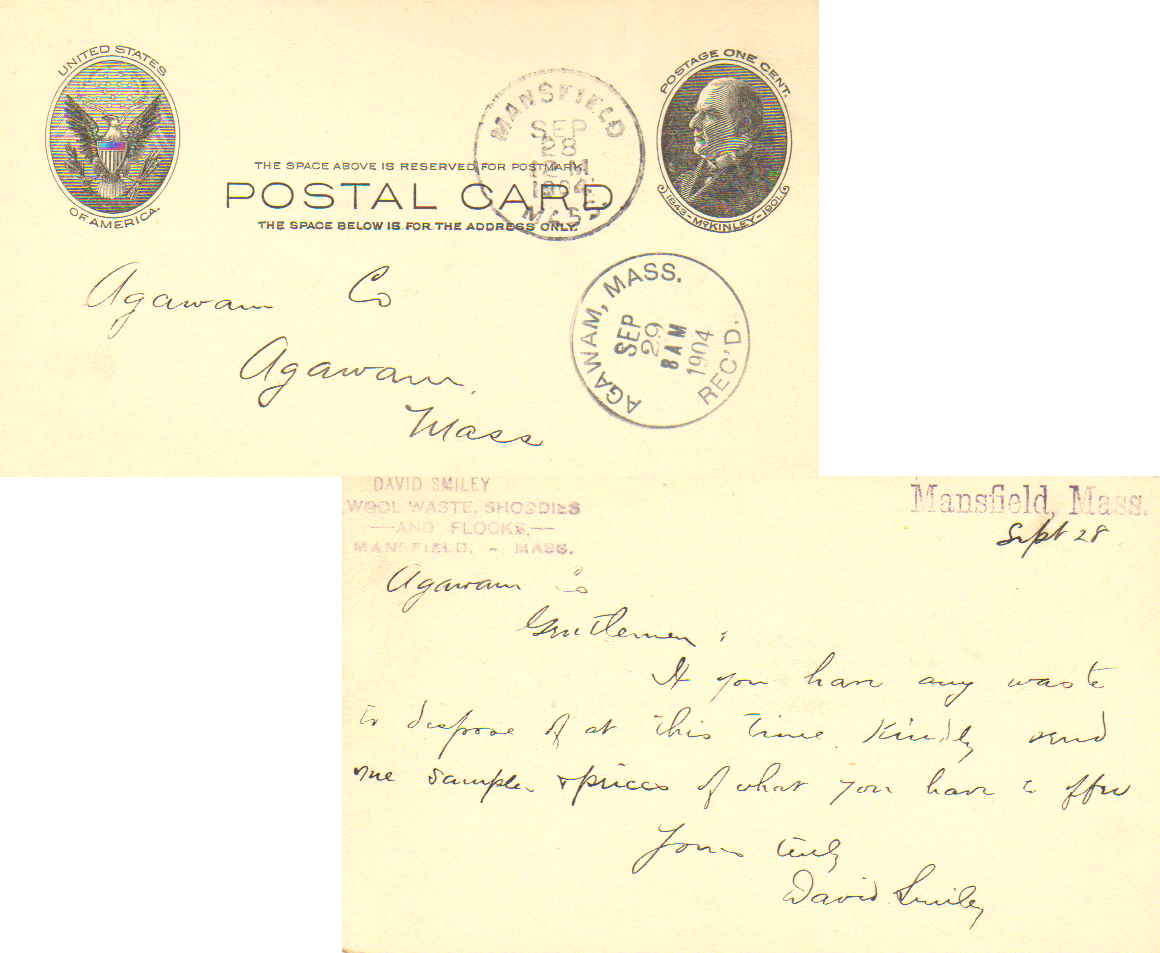 UNITED STATES
OF AMERICA.
POSTAGE ONE CENT.
1843-McKINLEY-1901
MANSFIELD
SEP
28
1904
MASS.
THE SPACE ABOVE IS RESERVED FOR POSTMARK.
POSTAL CARD.
THE SPACE BELOW IS FOR THE ADDRESS ONLY.
AGAWAM, MASS.
SEP
29
8 AM
1904
REC'D.
Agawam Co
Agawam,
Mass
DAVID SMILEY
WOOL WASTE, SHODDIES
—AND FLOCKS,—
MANSFIELD, - MASS.
Mansfield, Mass.
Sept 28
Agawam Co
Gentlemen:
If you have any waste
to dispose of at this time Kindly send
me samples & prices of what you have to offer
Yours truly
David Smiley